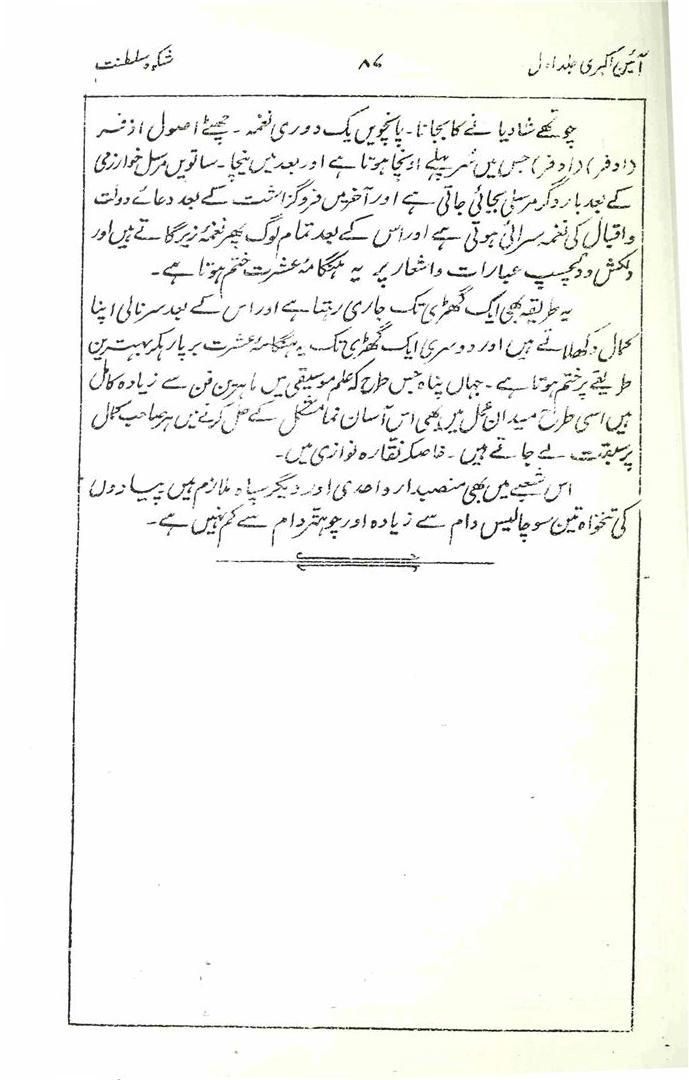 آئین اکبری جلد اول ۸۷ شکوہ سلطنت
چوتھے شادیانے کا بجانا۔ پانچویں یک دوری نغمہ۔ چھٹے اصول از فر
(داد فر) (داد فر) جس میں سُر پہلے اونچا ہوتا ہے اور بعد میں نیچا۔ ساتویں مرسل خوارزمی
کے بعد بار دگر مرسلی بجائی جاتی ہے اور آخر میں فروگزاشت کے بعد دعائے دولت
و اقبال کی نغمہ سرائی ہوتی ہے اور اس کے بعد تمام لوگ پھر نغمۂ زیر گاتے ہیں اور
دلکش و دلچسپ عبارات و اشعار پر یہ ہنگامۂ عشرت ختم ہوتا ہے۔
یہ طریقہ بھی ایک گھڑی تک جاری رہتا ہے اور اس کے بعد سرنائی اپنا
کمال دکھلاتے ہیں اور دوسری ایک گھڑی تک یہ ہنگامۂ عشرت برپا رہکر بہترین
طریقے پر ختم ہوتا ہے۔ جہاں پناہ جس طرح کہ علم موسیقی میں ماہرین فن سے زیادہ کامل
ہیں اسی طرح میدان عمل میں بھی اس آسان نما مشکل کے حل کرنے میں ہر صاحب کمال
پر سبقت لے جاتے ہیں۔ خاصکر نقارہ نوازی میں۔
اس شعبے میں بھی منصبدار واحدی اور دیگر سپاہ ملازم ہیں پیادوں
کی تنخواہ تین سو چالیس دام سے زیادہ اور چوہتر دام سے کم نہیں ہے۔